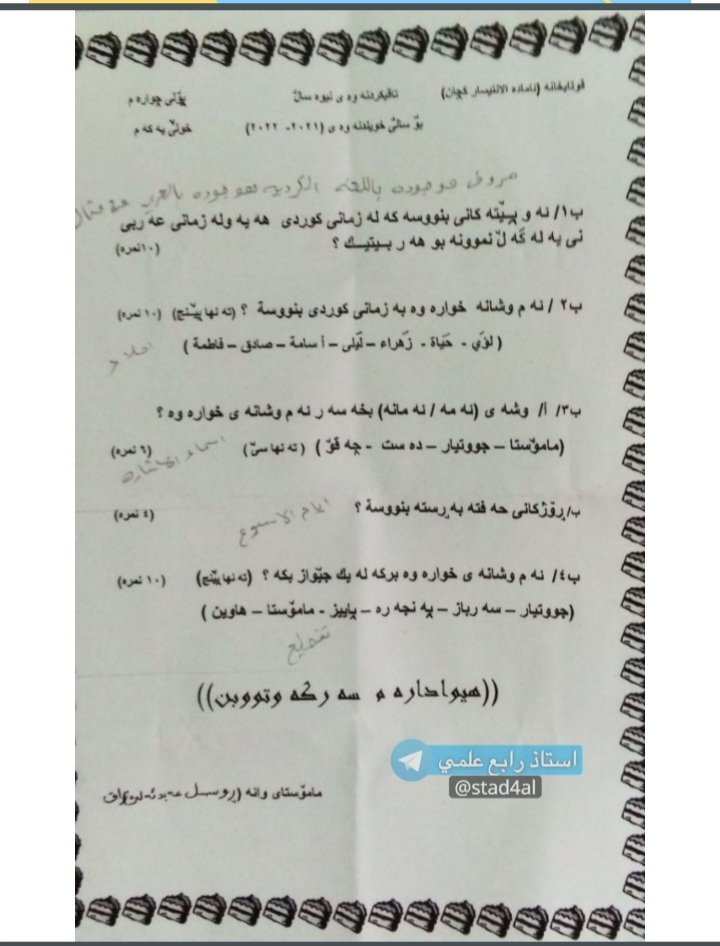 قوتابخانه (ئاماده الانتیسار کچان) تاقیکردنه وه ی نیوه سالّ پوّلی چواره م
بوّ سالّی خویّندنه وه ی (٢٠٢١- ٢٠٢٢) خولیّ یه که م
حروف موجوده باللغه الكرديه بالعربي
ب١/ ئه و پیته کانی بنووسه که له زمانی کوردی هه یه وله زمانی عه ربی
نی یه له گه لّ نموونه بو هه ر بیتیک ؟ (١٠نمره)
ب٢ / ئه م وشانه خواره وه به زمانی کوردی بنووسة ؟ (ته نها پیّنج) (١٠ نمره)
( لؤي - حَیاة - زَهراء – لَیلی – أسامة – صادق – فاطمة )
املاء
ب٣/ أ/ وشه ی (ئه مه / ئه مانه) بخه سه ر ئه م وشانه ی خواره وه ؟
(ماموّستا – جووتیار – ده ست - چه قوّ ) ( ته نها سیّ ) (٦ نمره)
اسماء الاشاره
ب/ روّژکانی حه فته به رِسته بنووسة ؟ (٤ نمره)
ايام الاسبوع
ب٤/ ئه م وشانه ی خواره وه برکه له یك جیّواز بکه ؟ (ته نها پیّنج) (١٠ نمره)
(جووتیار – سه رباز – په نجه ره – پاییز - ماموّستا – هاوین )
تقطيع
((هیواداره م سه رکه وتووبن))
استاذ رابع علمي
@stad4al
ماموّستای وانه